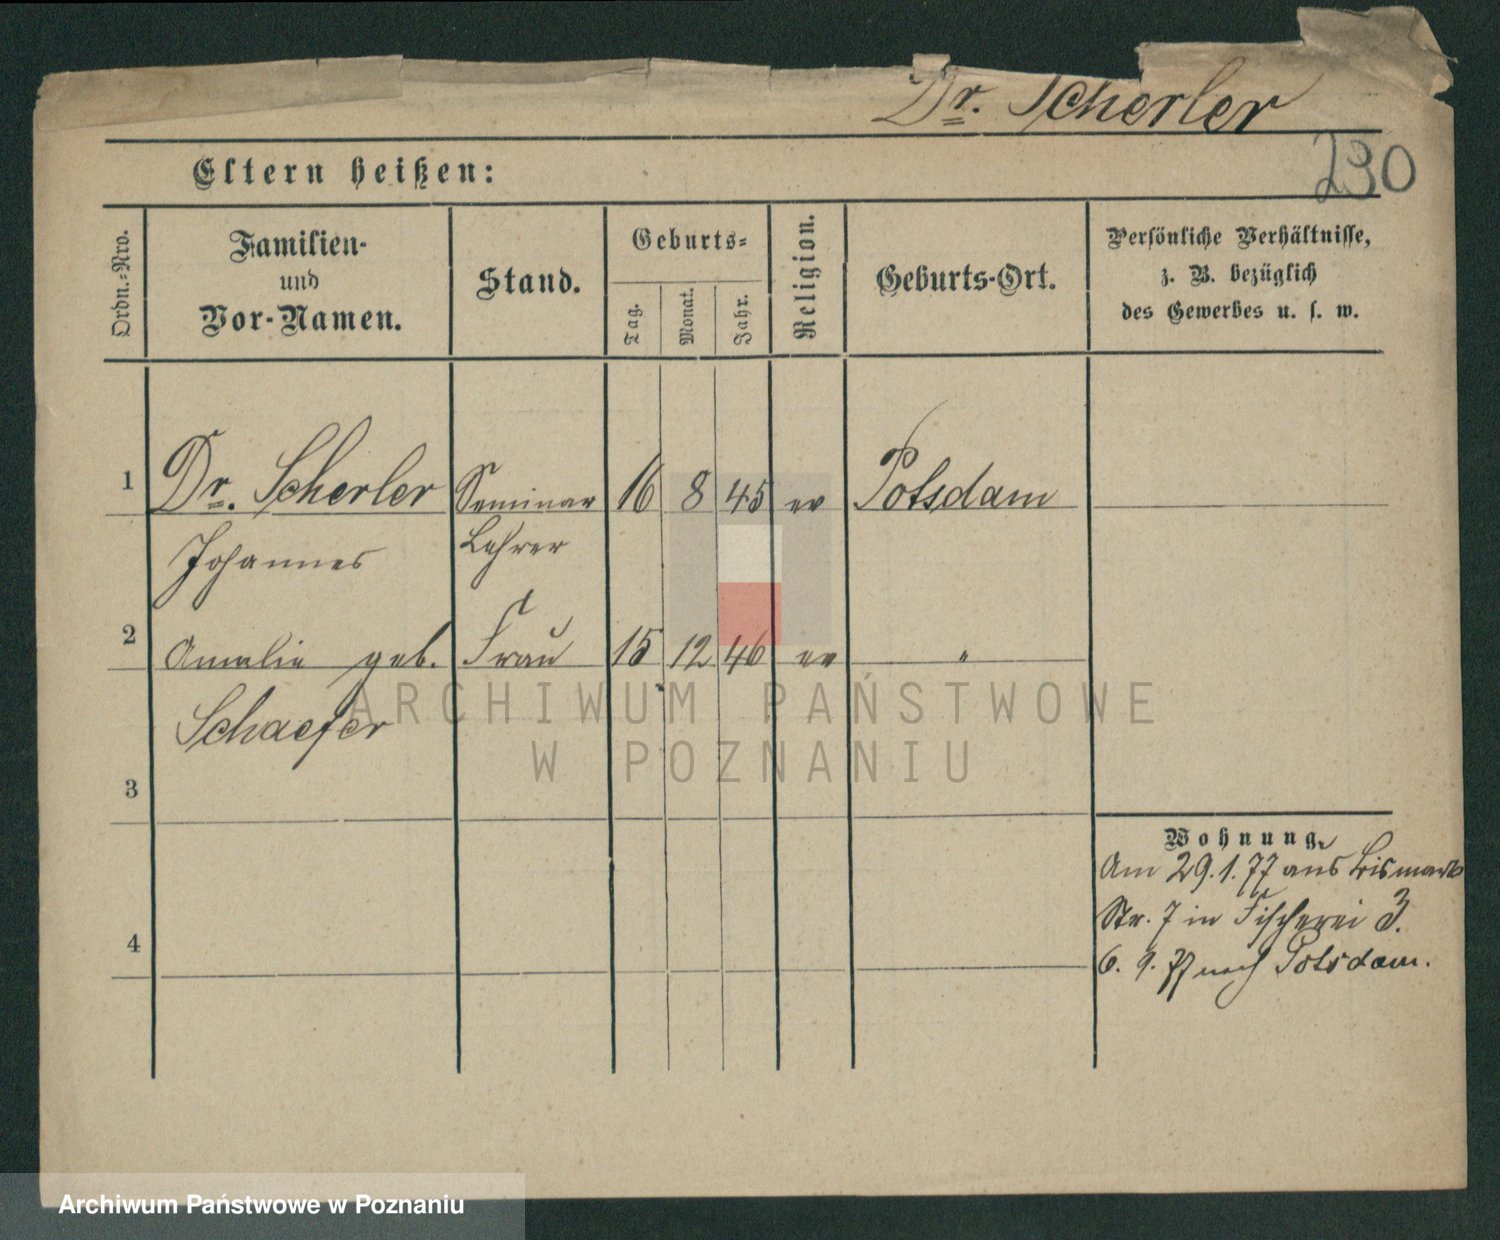 Dr. Scherler
230
Eltern heißen:
Ordn.-Nro.
Familien-
und
Vor-Namen.
Stand.
Geburts-
Tag.
Monat.
Jahr.
Religion.
Geburts-Ort.
Persönliche Verhältnisse,
z. B. bezüglich
des Gewerbes u. s. w.
1 Dr. Scherler Seminar 16 8 45 ev Potsdam
Johannes Lehrer
2 Amalie geb. Frau 15 12 46 ev "
Schaefer
ARCHIWUM PAŃSTWOWE
W POZNANIU
3
Wohnung.
Am 29.1.77 aus Bismark
Str. 7 in Fischerei 3.
4
6. 9. 77 nach Potsdam.
Archiwum Państwowe w Poznaniu